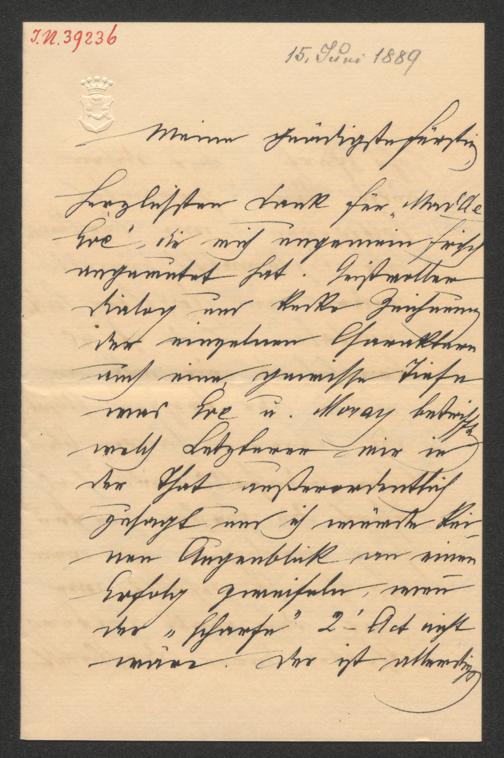 I.N. 39236
15. Juni 1889
Meine gnädigste Fürstin
Herzlichsten Dank für „Mad lle
Eve", die mich ungemein frisch
angemutet hat. Geistvoller
Dialog und kecke Zeichnung
der einzelnen Charaktere
auch eine gewisse Tiefe
was Eve u. Moray betrifft
welch Letzterer mir in
der That außerordentlich
zusagt und ich würde kei-
nen Augenblick an einen
Erfolg zweifeln, wenn
der „scharfe" 2te Act nicht
wäre. Der ist allerdings